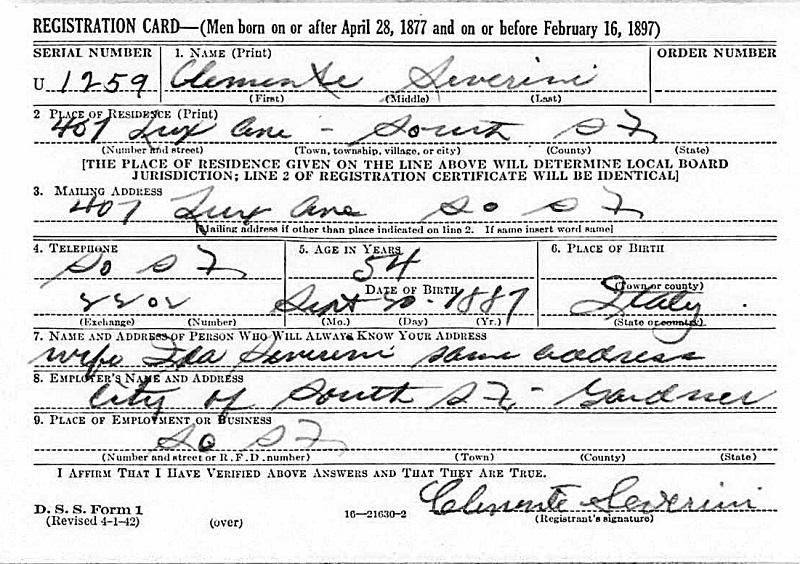 REGISTRATION CARD—(Men born on or after April 28, 1877 and on or before February 16, 1897)
SERIAL NUMBER 1. NAME (Print) ORDER NUMBER
U 1259 Clemente Severini
(First) (Middle) (Last)
2 PLACE OF RESIDENCE (Print)
407 Lux Ave - South S F
(Number and street) (Town, township, village, or city) (County) (State)
[THE PLACE OF RESIDENCE GIVEN ON THE LINE ABOVE WILL DETERMINE LOCAL BOARD
JURISDICTION; LINE 2 OF REGISTRATION CERTIFICATE WILL BE IDENTICAL]
3. MAILING ADDRESS
407 Lux Ave So S F
[Mailing address if other than place indicated on line 2. If same insert word same]
4. TELEPHONE 5. AGE IN YEARS 6. PLACE OF BIRTH
So S F 54
DATE OF BIRTH (Town or county)
2202 Sept 20 - 1887 Italy.
(Exchange) (Number) (Mo.) (Day) (Yr.) (State or country)
7. NAME AND ADDRESS OF PERSON WHO WILL ALWAYS KNOW YOUR ADDRESS
wife Ida Severini same address
8. EMPLOYER'S NAME AND ADDRESS
City of South S. F. - Gardner
9. PLACE OF EMPLOYMENT OR BUSINESS
So S F
(Number and street or R. F. D. number) (Town) (County) (State)
I AFFIRM THAT I HAVE VERIFIED ABOVE ANSWERS AND THAT THEY ARE TRUE.
Clemente Severini
D. S. S. Form 1
(Revised 4-1-42) (over) 16—21630-2 (Registrant's signature)